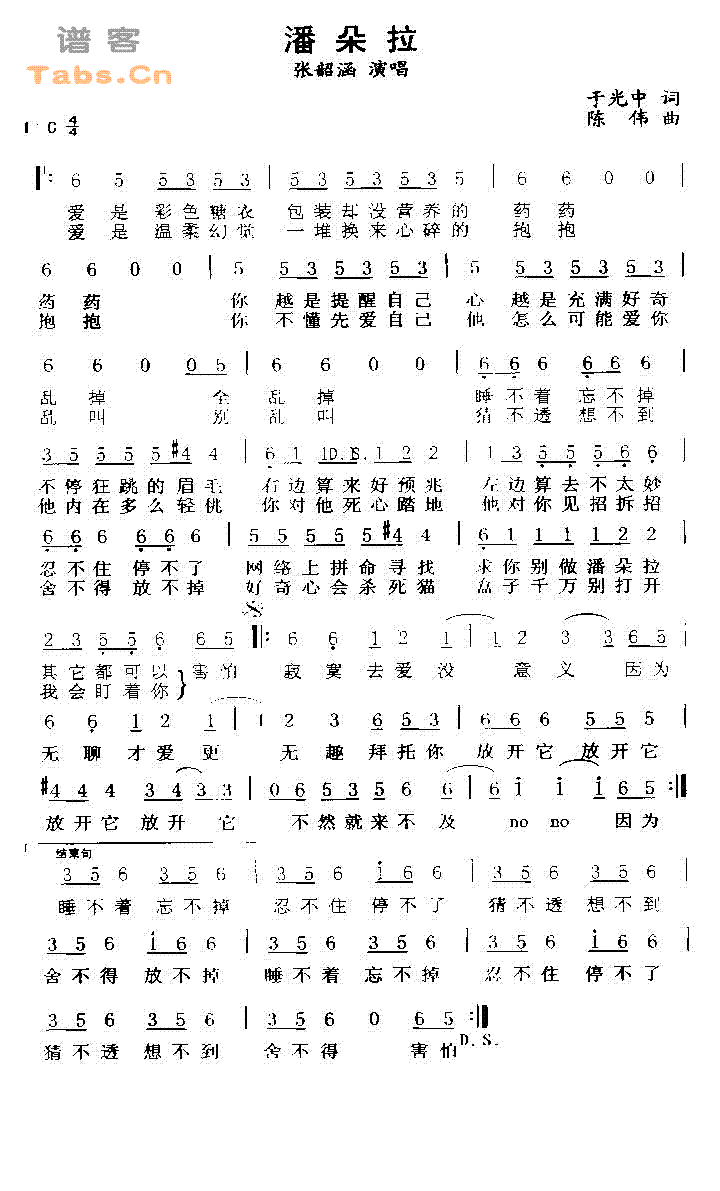 谱客
Tabs.Cn
潘朵拉
张韶涵 演唱
于光中 词
陈 伟 曲
C 4/4
6 5 5 3 5 3 | 5 3 5 3 5 3 5 | 6 6 0 0 |
爱是 彩色糖衣 包装却没营养的 药药
爱是 温柔幻觉 一堆换来心碎的 抱抱
6 6 0 0 | 5 5 3 5 3 5 3 | 5 5 3 5 3 5 3 |
药药 你 越是提醒自己 心 越是充满好奇
抱抱 你 不懂先爱自己 他 怎么可能爱你
6 6 0 0 5 | 6 6 0 0 | 6 6 6 6 6 6 |
乱掉 全 乱掉 睡不着 忘不掉
乱叫 别 乱叫 猜不透 想不到
3 5 5 5 5 #4 4 | 6 1 1 D.S. 1 2 2 | 1 3 5 5 5 6 6 |
不停狂跳的眉毛 右边算来好预兆 左边算去不太妙
他内在多么轻佻 你对他死心踏地 他对你见招拆招
6 6 6 6 6 6 | 5 5 5 5 5 #4 4 | 6 1 1 1 1 2 1 |
忍不住 停不了 网络上拼命寻找 求你别做潘朵拉
舍不得 放不掉 好奇心会杀死猫 盒子千万别打开
2 3 5 5 6 6 5 ‖: 6 6 1 2 1 | 1 2 3 3 6 5 |
其它都可以 害怕 寂寞去爱没 意义 因为
我会盯着你
6 6 1 2 1 | 1 2 3 6 5 3 | 6 6 6 5 5 5 |
无聊 才爱更 无趣拜托你 放开它 放开它
#4 4 4 3 4 3 3 | 0 6 5 3 5 6 6 | 6 i i 6 5 :‖
放开它 放开 它 不然就来不及 no no 因为
结束句
3 5 6 3 5 6 | 3 5 6 i 6 6 | 3 5 6 3 5 6 |
睡不着 忘不掉 忍不住 停不了 猜不透 想不到
3 5 6 i 6 6 | 3 5 6 3 5 6 | 3 5 6 i 6 6 |
舍不得 放不掉 睡不着 忘不掉 忍不住 停不了
3 5 6 3 5 6 | 3 5 6 0 6 5 :‖
D.S.
猜不透 想不到 舍不得 害怕